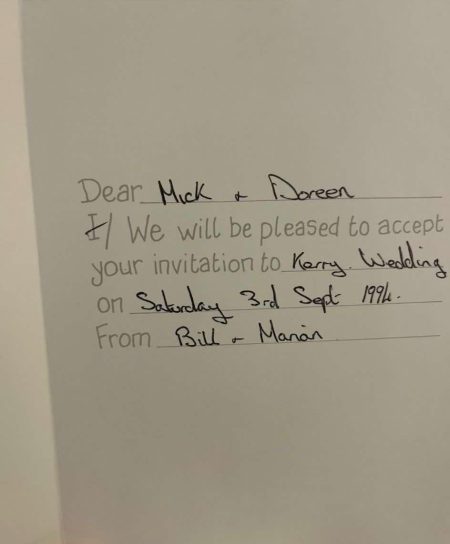 Dear Mick & Doreen
I/ We will be pleased to accept
your invitation to Kerry. Wedding
on Saturday 3rd Sept 1994.
From Bill & Marian